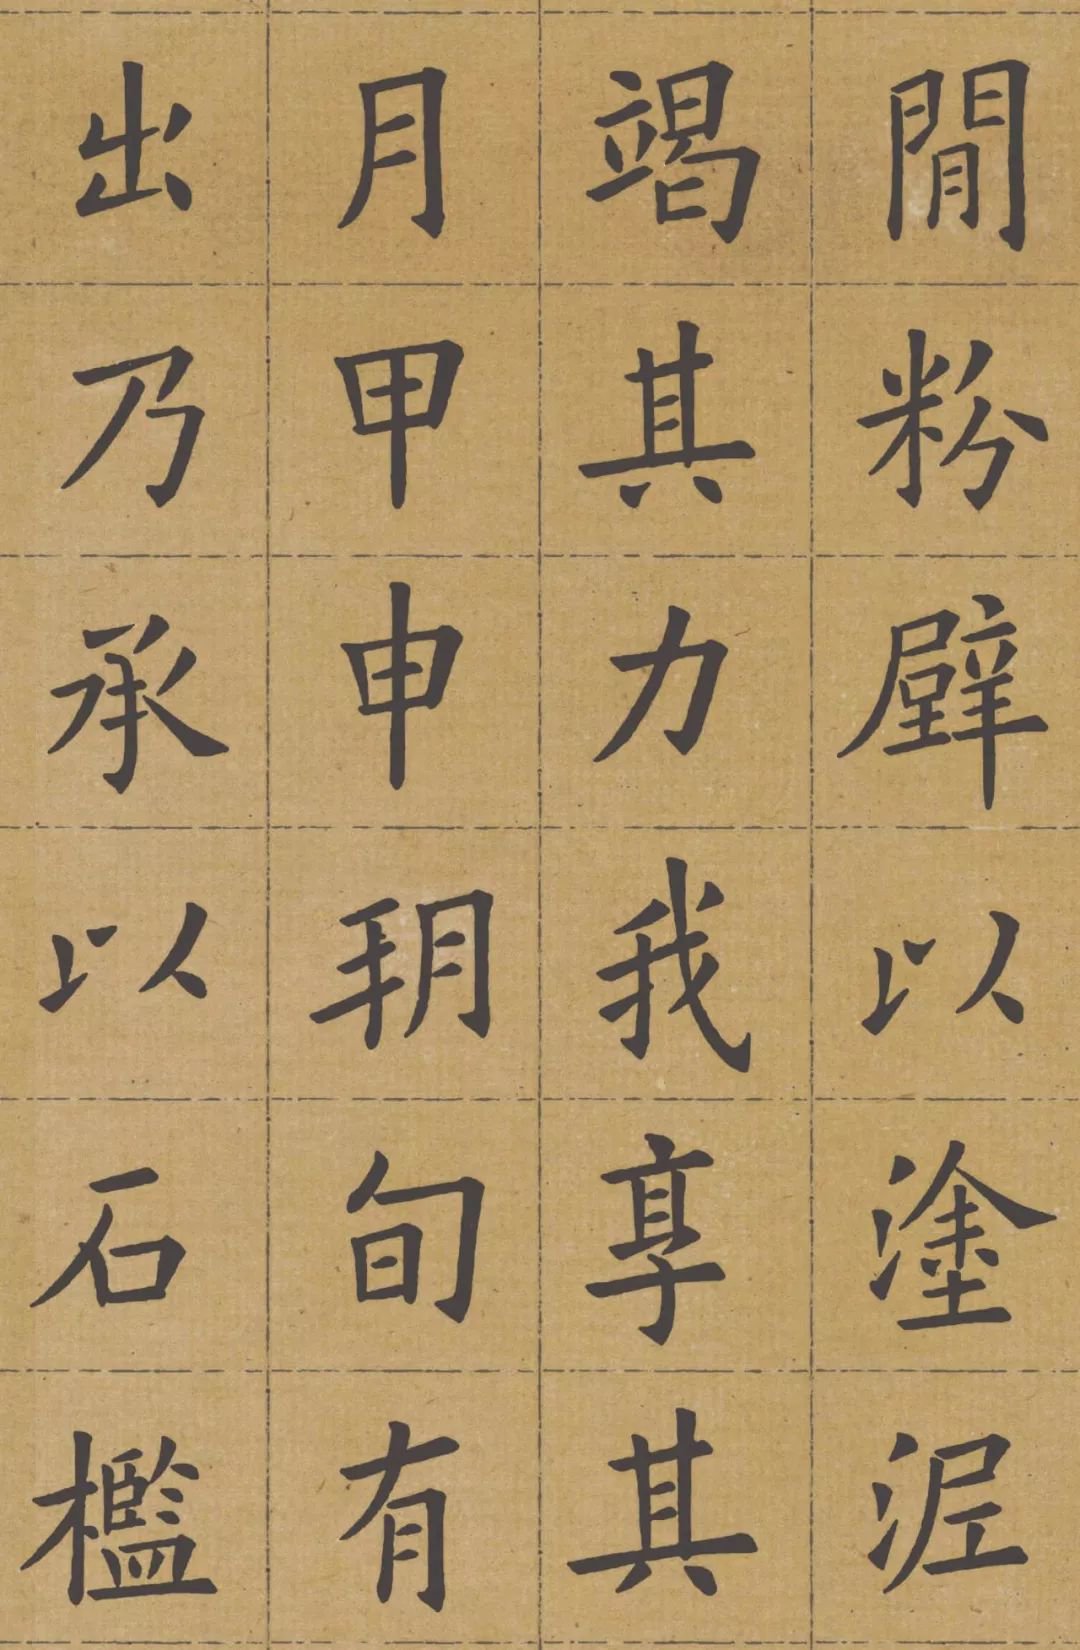 閒粉壁以塗泥
竭其力我享其
月甲申玥旬有
出乃承以石檻